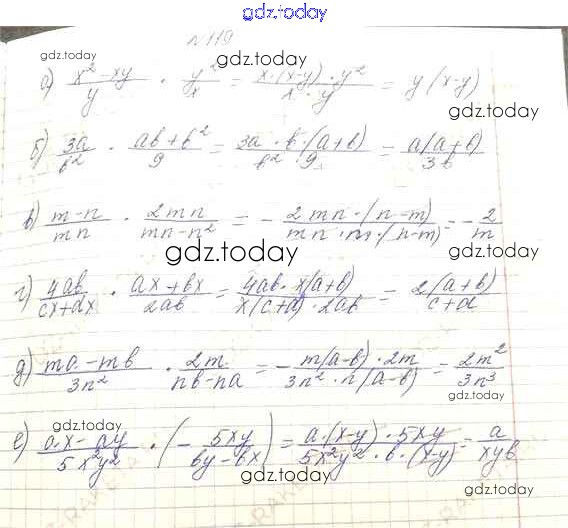 gdz.today
№119
gdz.today gdz.today
а) (x² - xy)/y · y²/x = (x·(x-y)·y²)/(x·y) = y(x-y)
gdz.today gdz.today
б) 3a/b² · (ab+b²)/9 = (3a·b·(a+b))/(b²·9) = a(a+b)/3b
в) (m-n)/mn · 2mn/(mn-n²) = - (2mn·(n-m))/(mn·m·(n-m)) = - 2/m
gdz.today gdz.today
г) 4ab/(cx+dx) · (ax+bx)/2ab = (4ab·x(a+b))/(x(c+d)·2ab) = 2(a+b)/(c+d)
gdz.today gdz.today
д) (ma-mb)/3n² · 2m/(nb-na) = - (m(a-b)·2m)/(3n²·n(a-b)) = 2m²/3n³
gdz.today gdz.today
е) (ax-ay)/5x²y² · (- 5xy/(by-bx)) = (a·(x-y)·5xy)/(5x²y²·b·(x-y)) = a/xyb
gdz.today gdz.today